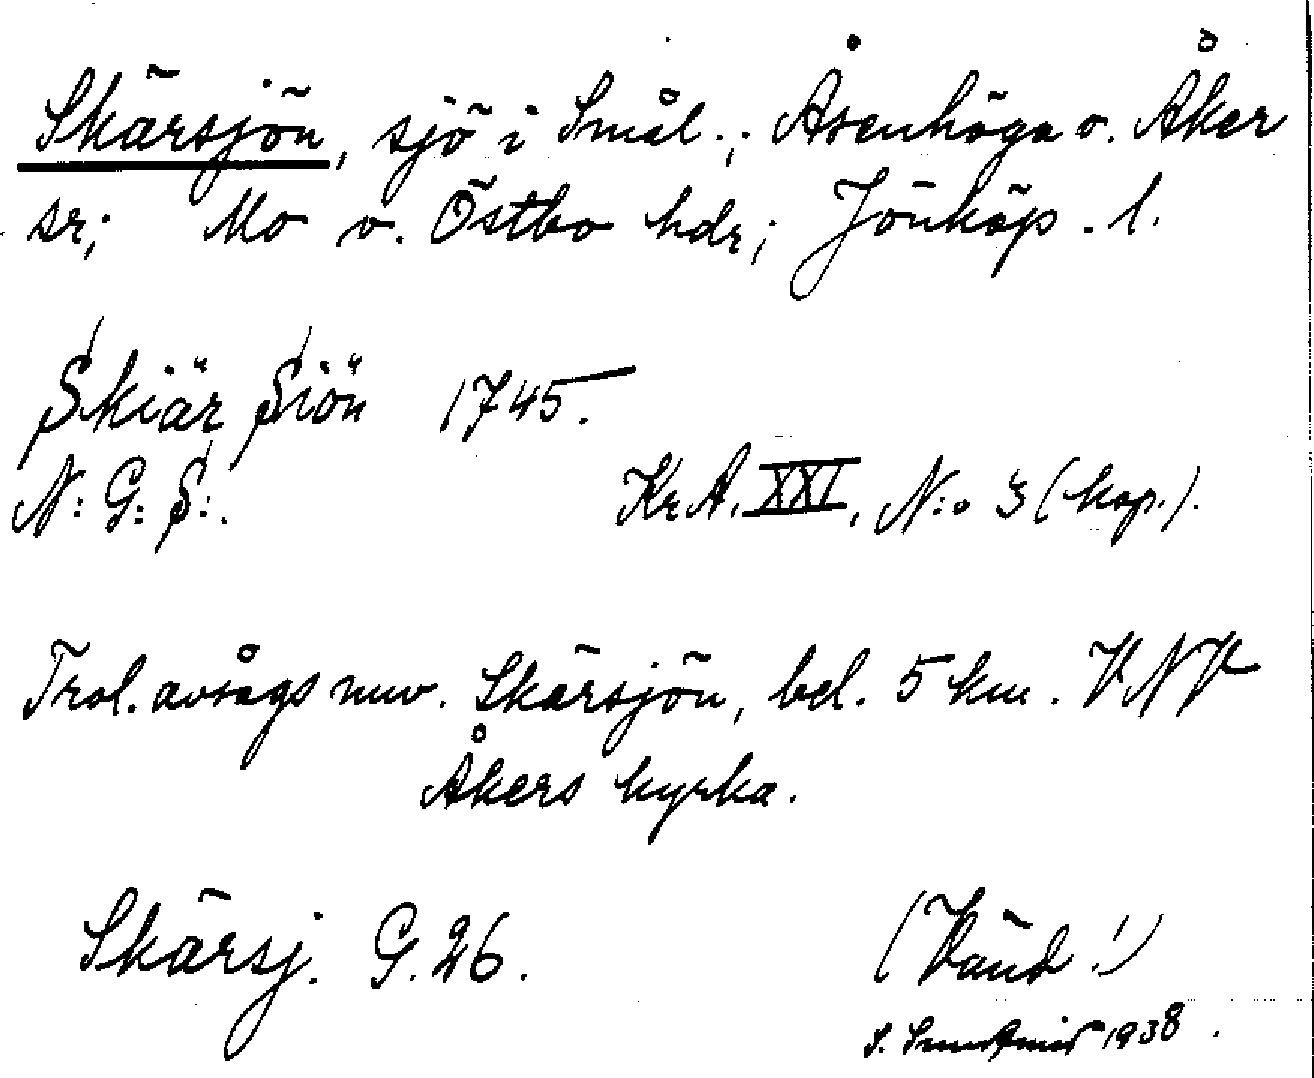 Skärsjön, sjö i Smål.; Åsenhöga o. Åker
sr; Mo o. Östbo hdr; Jönköp. l.
Skiär Siön 1745.
N: G: S:.
KrA. XXI, N:o 3 (kop.).
Trol. avsågs nuv. Skärsjön, bel. 5 km. VNV
Åkers kyrka.
Skärsj. G. 26.
(Vänd!)
S. 1938.